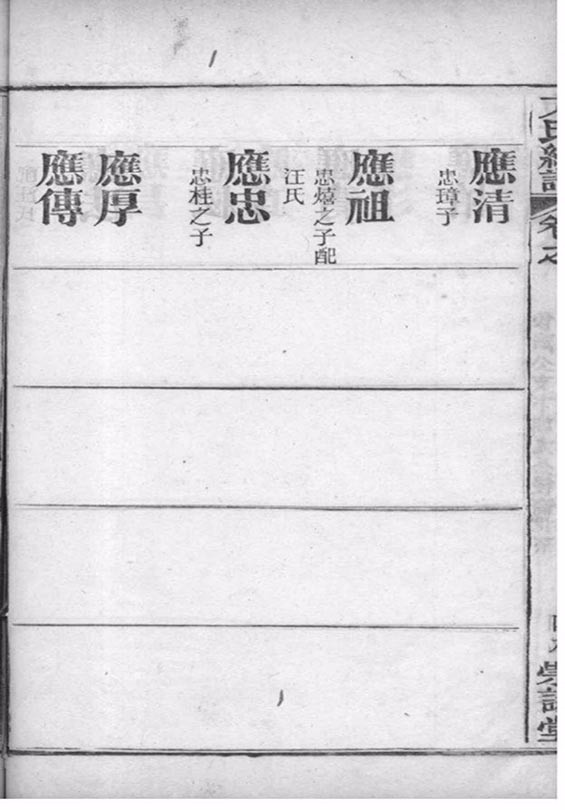 氏經譜
應清
忠璋子
應祖
忠熺之子配
汪氏
應忠
忠桂之子
應厚
應傳